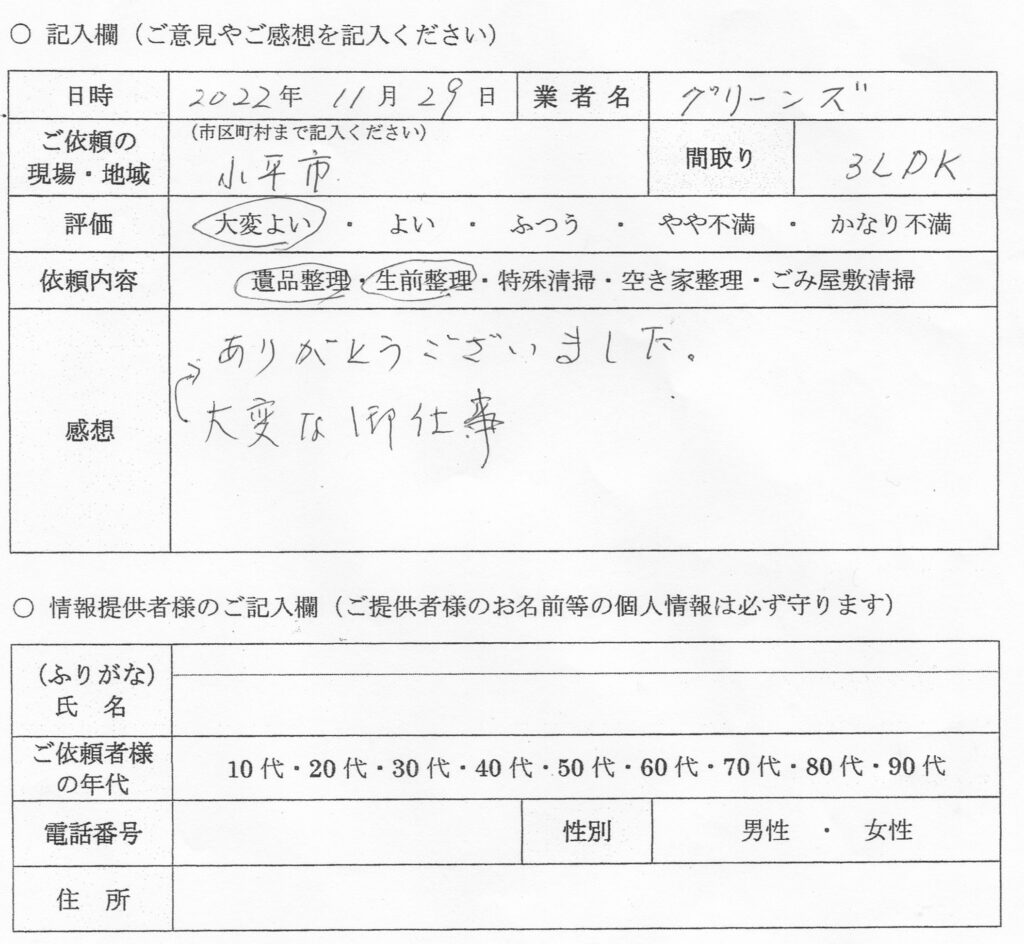 ○ 記入欄（ご意見やご感想を記入ください）
日時 2022年 11月 29日 業者名 グリーンズ
ご依頼の現場・地域 （市区町村まで記入ください） 小平市 間取り 3LDK
評価 大変よい ・ よい ・ ふつう ・ やや不満 ・ かなり不満
依頼内容 遺品整理・生前整理・特殊清掃・空き家整理・ごみ屋敷清掃
感想 ありがとうございました。
大変な御仕事
○ 情報提供者様のご記入欄（ご提供者様のお名前等の個人情報は必ず守ります）
（ふりがな）
氏 名
ご依頼者様の年代 10代・20代・30代・40代・50代・60代・70代・80代・90代
電話番号 性別 男性 ・ 女性
住 所